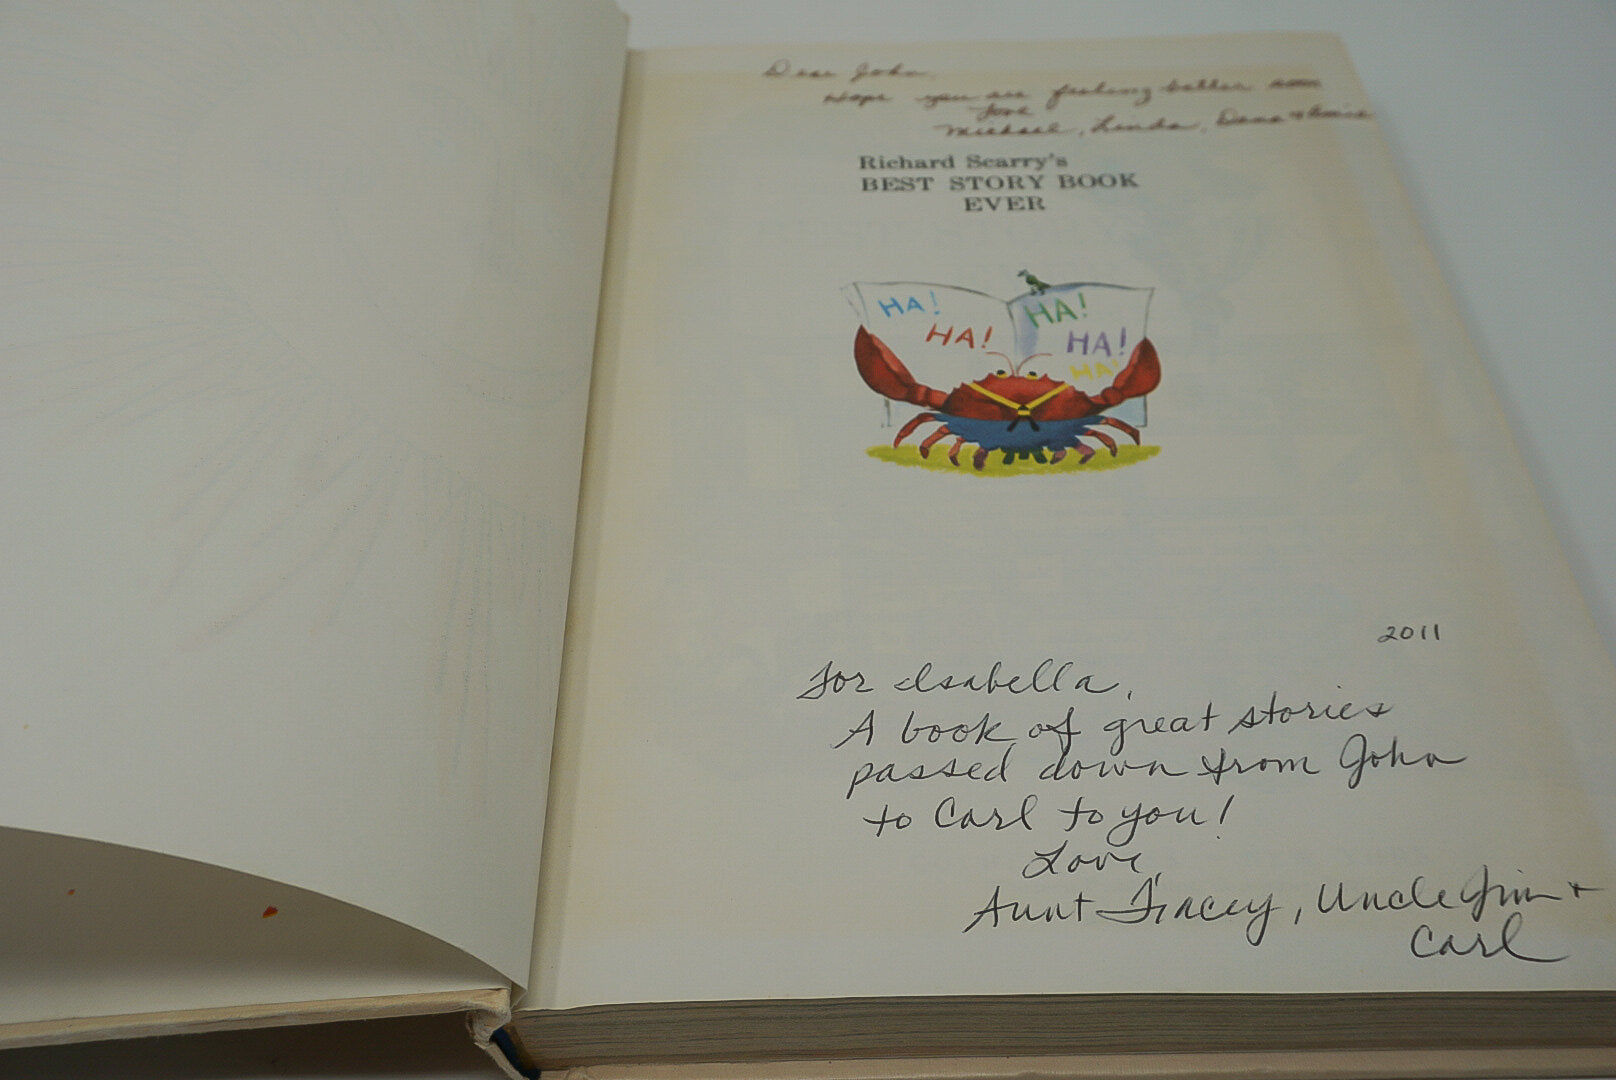 Dear John,
Hope you are feeling better soon
Love
Michael, Linda, Dana &
Richard Scarry's
BEST STORY BOOK
EVER
HA! HA!
HA! HA!
HA!
2011
For Isabella,
A book of great stories
passed down from John
to Carl to you!
Love,
Aunt Tracey, Uncle Jim +
Carl